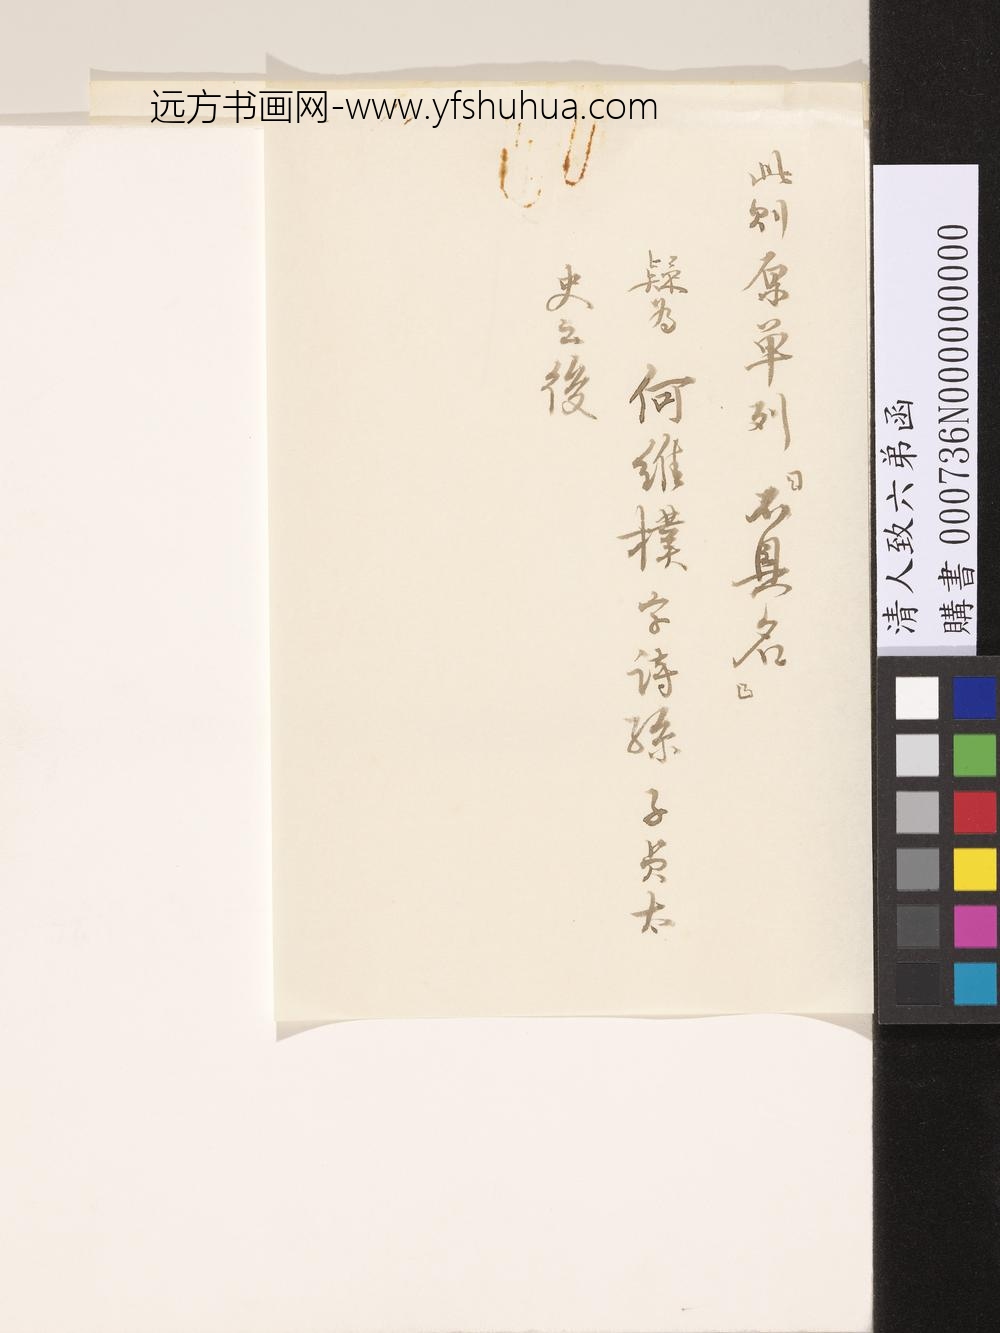 远方书画网-www.yfshuhua.com
此则原單列「不具名」
疑為何維樸字詩孫子貞太
史之後
清人致六弟函
購書 000736N000000000